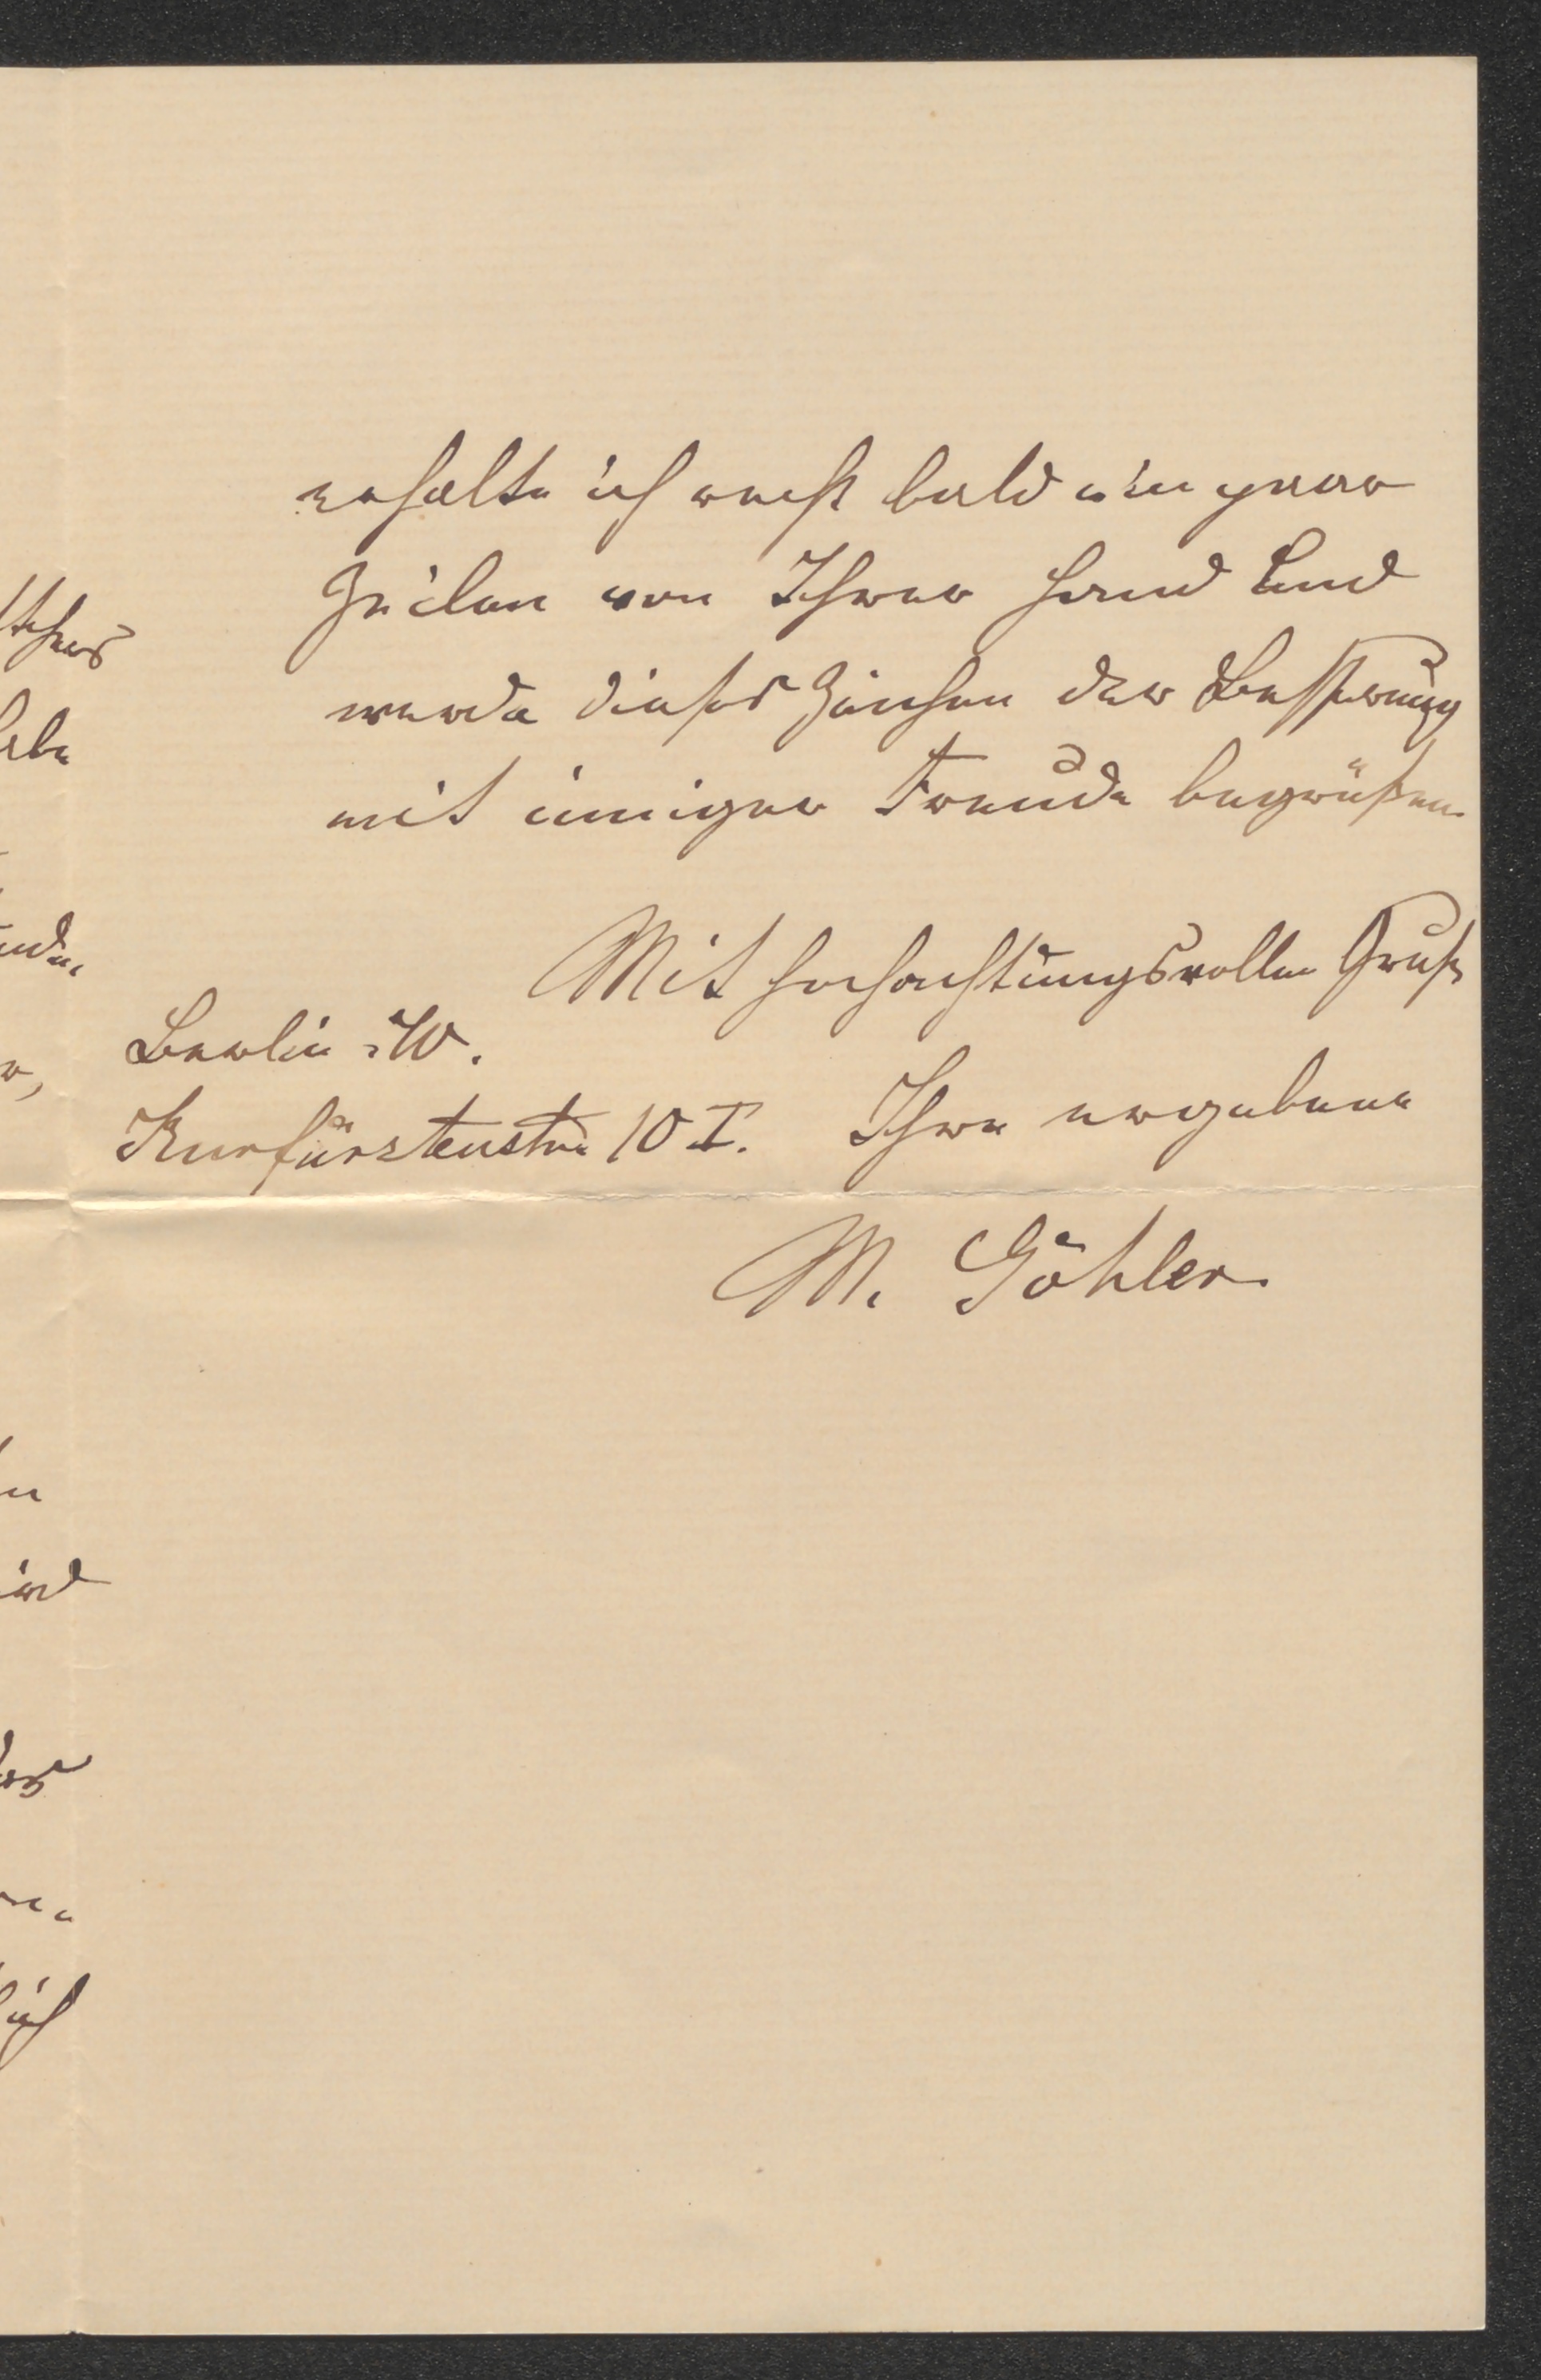 erhalte ich recht bald ein paar
Zeilen von Ihrer Hand und
werde dieses Zeichen der Besserung
mit inniger Freude begrüßen.
Mit hochachtungsvollem Gruß
Berlin W.
Kurfürstenstr. 10 I. Ihre ergebene
M. Göhler.